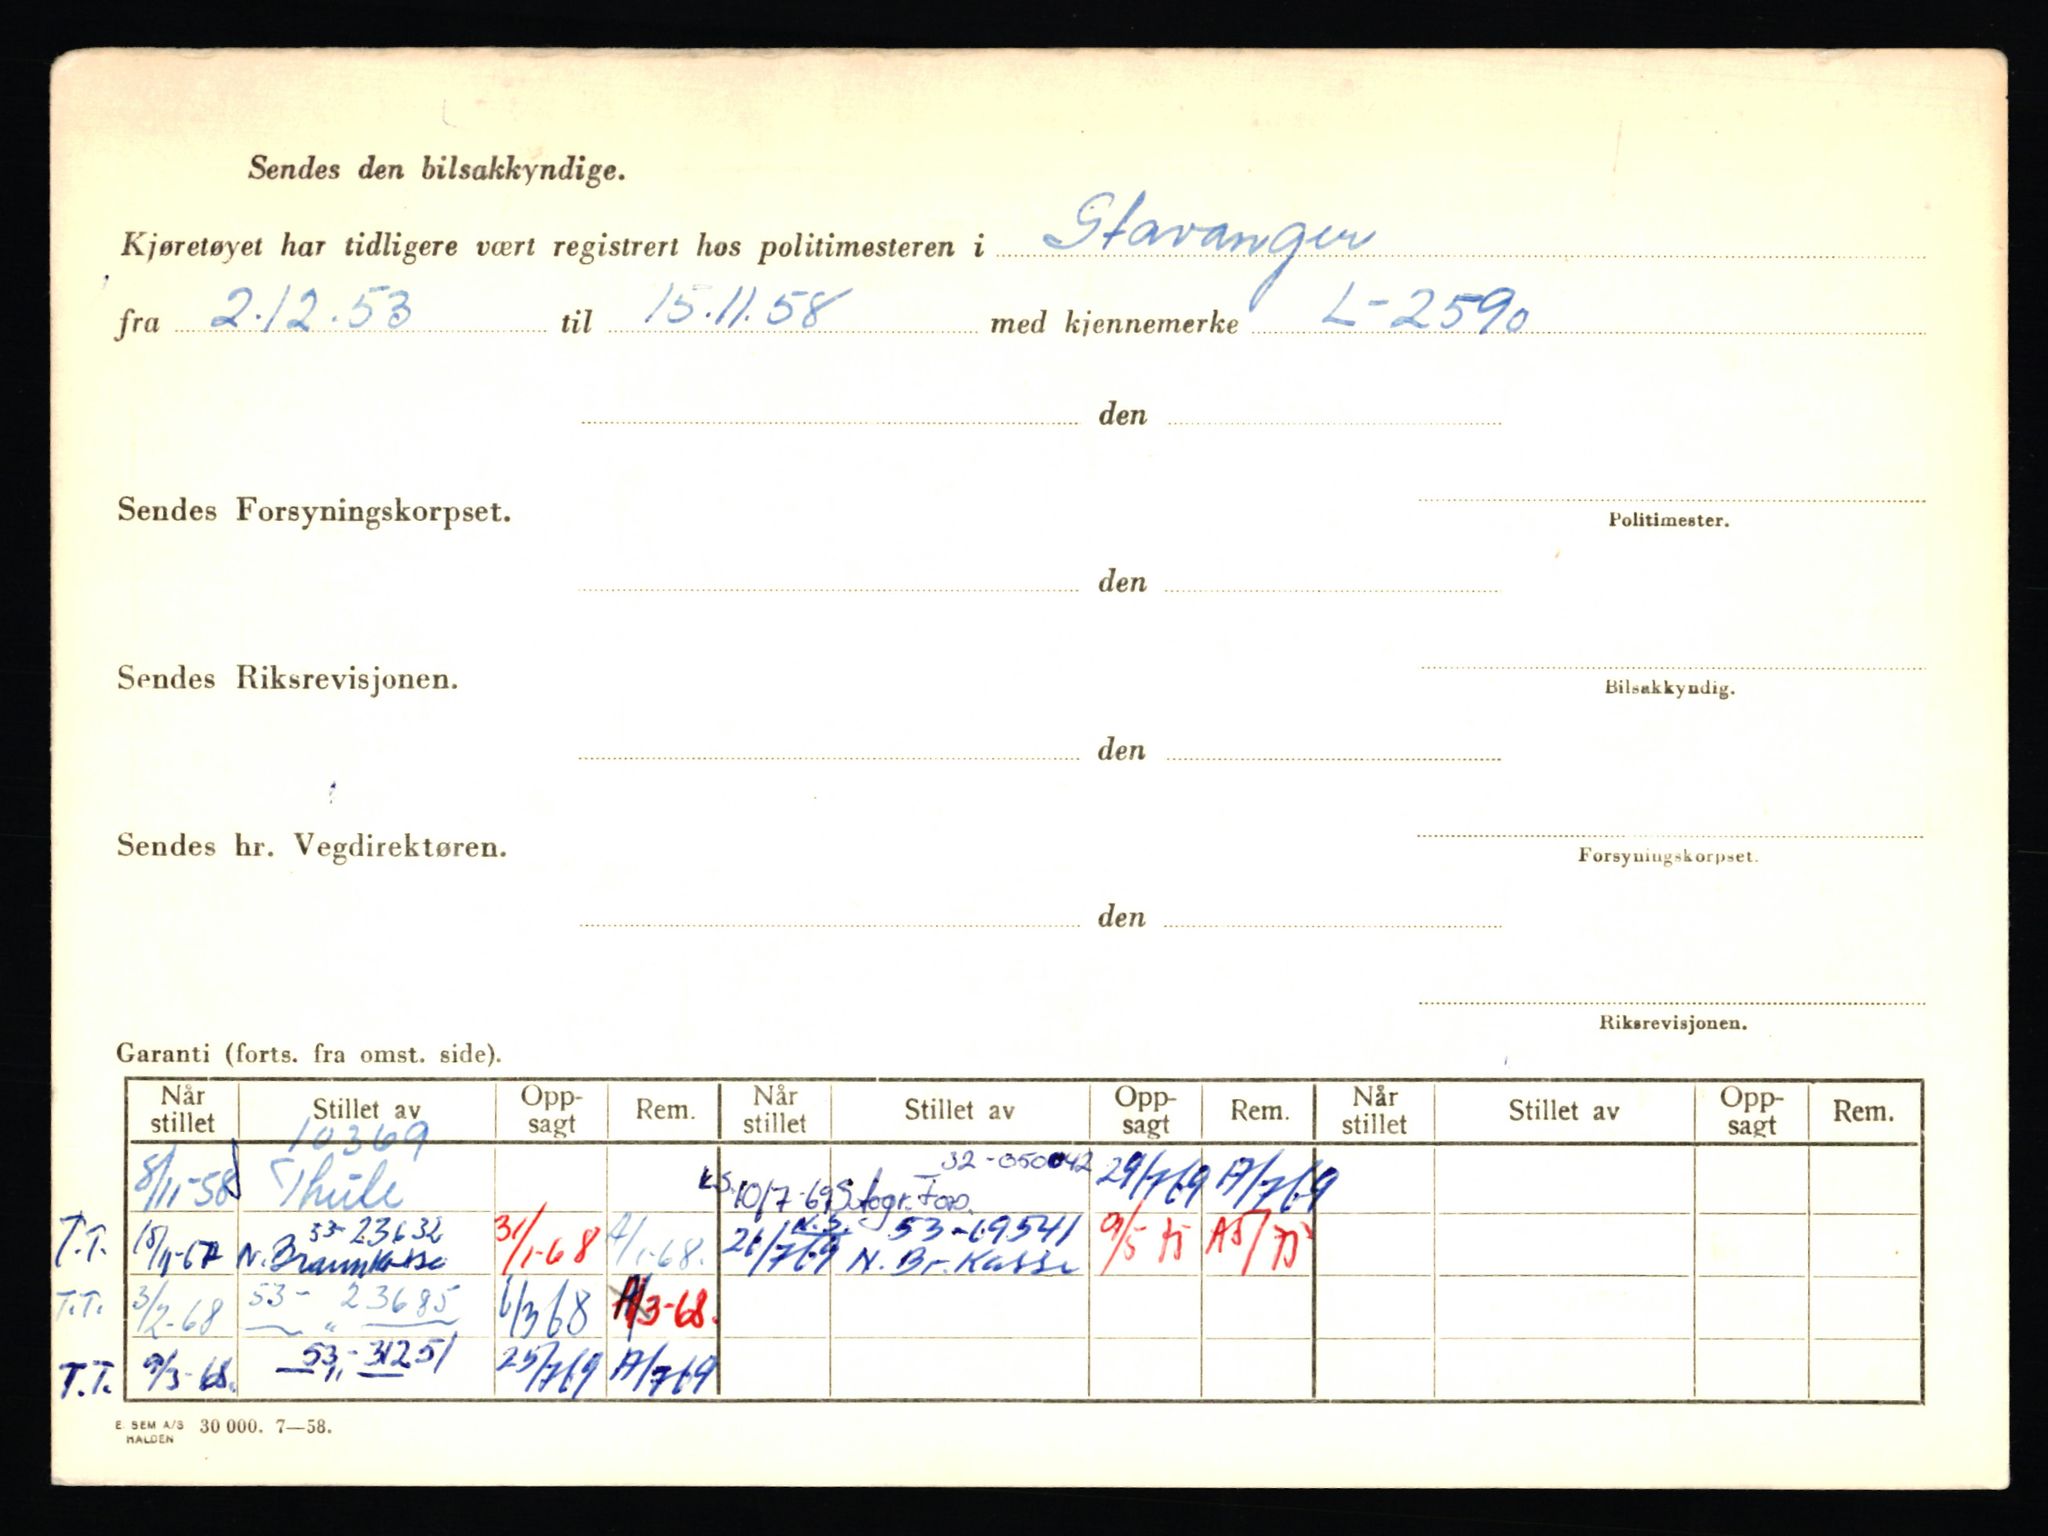 Sendes den bilsakkyndige.
Kjøretøyet har tidligere vært registrert hos politimesteren i Stavanger
fra 2.12.53 til 15.11.58 med kjennemerke L-2590
den
Sendes Forsyningskorpset.
Politimester.
den
Sendes Riksrevisjonen.
Bilsakkyndig.
den
Sendes hr. Vegdirektøren.
Forsyningskorpset.
den
Riksrevisjonen.
Garanti (forts. fra omst. side).
Når stillet Stillet av Opp-sagt Rem. Når stillet Stillet av Opp-sagt Rem. Når stillet Stillet av Opp-sagt Rem.
10369
8/11-58 Thule
10/7-69 29/7 69 A/7 69
53-23632
T.T. 15/11-67 31/1-68 A/1-68.
53-69541
26/7 69 N. Br. Kasse 9/5 75
T.T. 3/2-68 53- " 23685 6/3 68 A/3-68.
T.T. 9/3-68. 53- " 31251 25/7 69 A/7 69
E. SEM A/S HALDEN 30 000. 7—58.